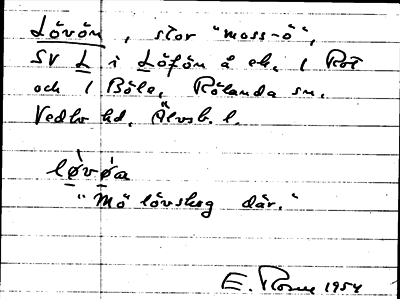 Lövön, stor "moss-ö",
SV L i Löfön å ek. 1 Röt
och 1 Böle, Rölanda sn.
Vedbo hd, Älvsb. l.
lø̀vø̀a
"Mö lövskog där."
E. 1954